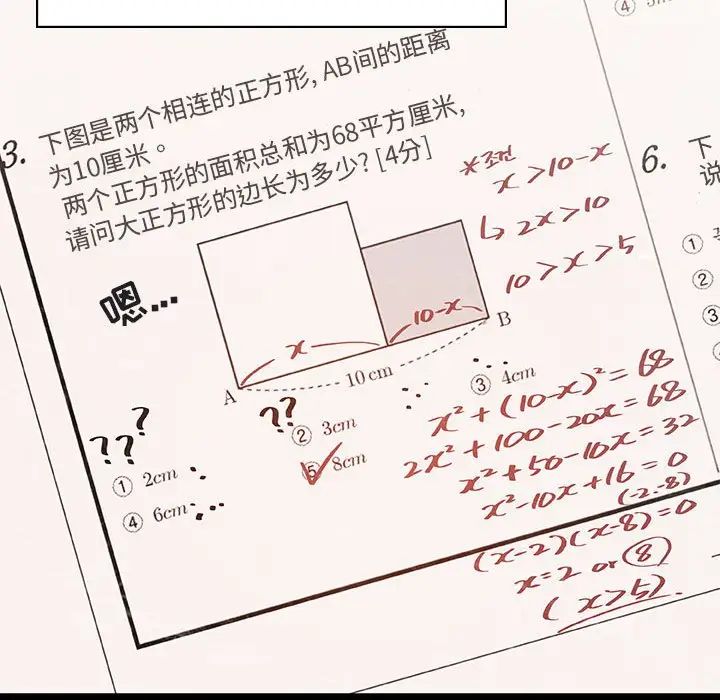 3. 下图是两个相连的正方形, AB间的距离
为10厘米。
两个正方形的面积总和为68平方厘米,
请问大正方形的边长为多少? [4分]
嗯...
x
10-x
A
10 cm
B
???
??
① 2cm
② 3cm
③ 4cm
④ 6cm
⑤ 8cm
*조건
x>10-x
↳ 2x>10
10>x>5
x²+(10-x)²=68
2x²+100-20x=68
x²+50-10x=32
x²-10x+16=0
(-2.-8)
(x-2)(x-8)=0
x=2 or 8
(x>5)
6. 下
说
①
②
③
④